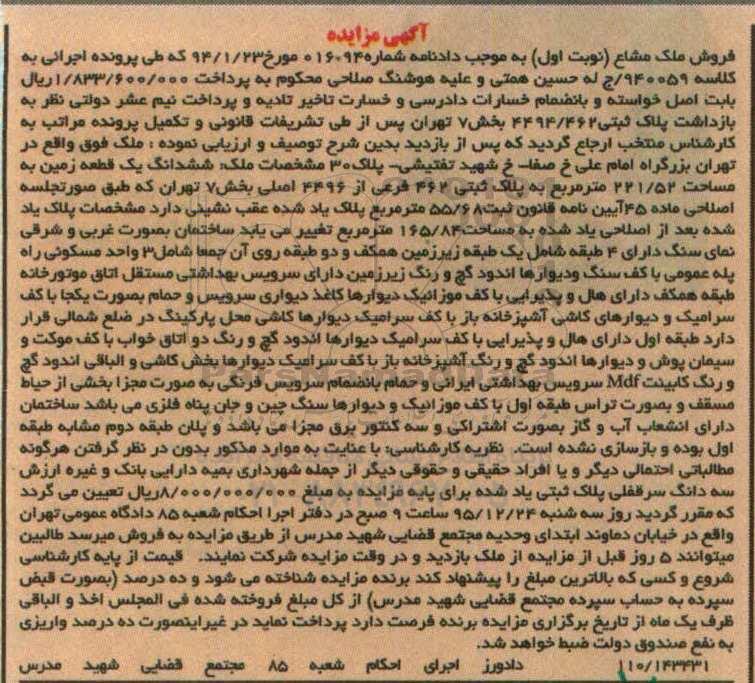 آگهی مزایده
فروش ملک مشاع (نوبت اول) به موجب دادنامه شماره۰۱۶۰۹۴ مورخ۹۴/۱/۲۳ که طی پرونده اجرائی به
کلاسه ۹۴۰۰۵۹/ج له حسین همتی و علیه هوشنگ صلاحی محکوم به پرداخت ۱/۸۳۳/۶۰۰/۰۰۰ریال
بابت اصل خواسته و بانضمام خسارات دادرسی و خسارت تاخیر تادیه و پرداخت نیم عشر دولتی نظر به
بازداشت پلاک ثبتی۴۴۹۴/۴۶۲ بخش۷ تهران پس از طی تشریفات قانونی و تکمیل پرونده مراتب به
کارشناس منتخب ارجاع گردید که پس از بازدید بدین شرح توصیف و ارزیابی نموده : ملک فوق واقع در
تهران بزرگراه امام علی خ صفا- خ شهید تفتیشی- پلاک۳۰ مشخصات ملک: ششدانگ یک قطعه زمین به
مساحت ۲۲۱/۵۲ مترمربع به پلاک ثبتی ۴۶۲ فرعی از ۴۴۹۶ اصلی بخش۷ تهران که طبق صورتجلسه
اصلاحی ماده ۴۵آیین نامه قانون ثبت۵۵/۶۸ مترمربع پلاک یاد شده عقب نشینی دارد مشخصات پلاک یاد
شده بعد از اصلاحی یاد شده به مساحت۱۶۵/۸۴ مترمربع تغییر می یابد ساختمان بصورت غربی و شرقی
نمای سنگ دارای ۴ طبقه شامل یک طبقه زیرزمین همکف و دو طبقه روی آن جمعا شامل۳ واحد مسکونی راه
پله عمومی با کف سنگ ودیوارها اندود گچ و رنگ زیرزمین دارای سرویس بهداشتی مستقل اتاق موتورخانه
طبقه همکف دارای هال و پذیرایی با کف موزائیک دیوارها کاغذ دیواری سرویس و حمام بصورت یکجا با کف
سرامیک و دیوارهای کاشی آشپزخانه باز با کف سرامیک دیوارها کاشی محل پارکینگ در ضلع شمالی قرار
دارد طبقه اول دارای هال و پذیرایی با کف سرامیک دیوارها اندود گچ و رنگ دو اتاق خواب با کف موکت و
سیمان پوش و دیوارها اندود گچ و رنگ آشپزخانه باز با کف سرامیک دیوارها بخش کاشی و الباقی اندود گچ
و رنگ کابینت Mdf سرویس بهداشتی ایرانی و حمام بانضمام سرویس فرنگی به صورت مجزا بخشی از حیاط
مسقف و بصورت تراس طبقه اول با کف موزائیک و دیوارها سنگ چین و جان پناه فلزی می باشد ساختمان
دارای انشعاب آب و گاز بصورت اشتراکی و سه کنتور برق مجزا می باشد و پلان طبقه دوم مشابه طبقه
اول بوده و بازسازی نشده است. نظریه کارشناسی: با عنایت به موارد مذکور بدون در نظر گرفتن هرگونه
مطالباتی احتمالی دیگر و یا افراد حقیقی و حقوقی دیگر از جمله شهرداری بمیه دارایی بانک و غیره ارزش
سه دانگ سرقفلی پلاک ثبتی یاد شده برای پایه مزایده به مبلغ ۸/۰۰۰/۰۰۰/۰۰۰ریال تعیین می گردد
که مقرر گردید روز سه شنبه ۹۵/۱۲/۲۴ ساعت ۹ صبح در دفتر اجرا احکام شعبه ۸۵ دادگاه عمومی تهران
واقع در خیابان دماوند ابتدای وحدیه مجتمع قضایی شهید مدرس از طریق مزایده به فروش میرسد طالبین
میتوانند ۵ روز قبل از مزایده از ملک بازدید و در وقت مزایده شرکت نمایند. قیمت از پایه کارشناسی
شروع و کسی که بالاترین مبلغ را پیشنهاد کند برنده مزایده شناخته می شود و ده درصد (بصورت قبض
سپرده به حساب سپرده مجتمع قضایی شهید مدرس) از کل مبلغ فروخته شده فی المجلس اخذ و الباقی
ظرف یک ماه از تاریخ برگزاری مزایده برنده فرصت دارد پرداخت نماید در غیراینصورت ده درصد واریزی
به نفع صندوق دولت ضبط خواهد شد.
۱۱۰/۱۴۳۴۳۱ دادورز اجرای احکام شعبه ۸۵ مجتمع قضایی شهید مدرس